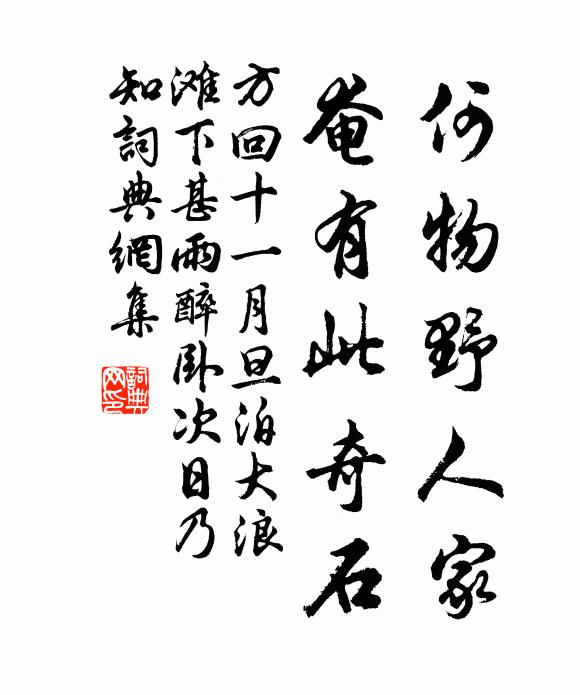 何物野人家
奄有此奇石
方回十一月旦泊大浪
滩下甚雨醉卧次日乃
知詞典網集
詞典
网印